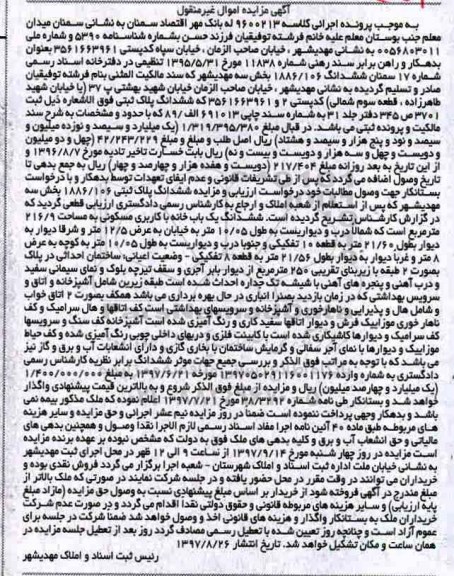 آگهی مزایده اموال غیرمنقول
به موجب پرونده اجرائی کلاسه ۹۶۰۰۲۱۳ له بانک مهر اقتصاد سمنان به نشانی سمنان میدان
معلم جنب بوستان معلم علیه خانم فرشته توفیقیان فرزند حسن بشماره شناسنامه ۵۳۹۰ و شماره ملی
۰۰۵۶۸۰۳۰۱۱ به نشانی مهدیشهر ، خیابان صاحب الزمان ، خیابان سپاه کدپستی ۳۵۶۱۶۶۳۹۶۱ بعنوان
بدهکار و راهن برابر سند رهنی شماره ۱۱۸۳۸ مورخ ۱۳۹۵/۵/۳۱ تنظیمی در دفترخانه اسناد رسمی
شماره ۱۷ سمنان ششدانگ ۱۸۸۶/۱۰۶ بخش سه مهدیشهر که سند مالکیت المثنی بنام فرشته توفیقیان
صادر و تسلیم گردیده به نشانی مهدیشهر ، خیابان صاحب الزمان خیابان شهید بهشتی پ ۳۷ (یا خیابان شهید
طاهرزاده ، قطعه سوم شمالی) کدپستی ۲ و ۳۵۶۱۶۶۳۹۶۱ که ششدانگ پلاک ثبتی فوق الاشعاره ذیل ثبت
۳۷۰۱ ص ۳۴۵ دفتر جلد ۳۱ به شماره سند چاپی ۶۹۱۰۱۳ الف /۸۹ که با حدود و مشخصات به شرح سند
مالکیت و پرونده ثبتی می باشد. در قبال مبلغ ۱/۳۱۹/۳۹۵/۳۸۰ (یک میلیارد و سیصد و نوزده میلیون و
سیصد و نود و پنج هزار و سیصد و هشتاد) ریال اصل طلب و مبلغ و مبلغ ۴۲/۲۴۳/۲۲۹ (چهل و دو میلیون
و دویست و چهل و سه هزار و دویست و بیست و نه) ریال بابت خسارت تاخیر تادیه مورخ ۱۳۹۶/۸/۷ و
از این تاریخ به بعد روزانه مبلغ ۲۱۷/۴۰۴ (دویست و هفده هزار و چهارصد و چهار) ریال به جمع بدهی تا
تاریخ وصول اضافه می گردد که پس از طی تشریفات قانونی و عدم ایفای تعهدات توسط بدهکار و با درخواست
بستانکار جهت وصول مطالبات خود درخواست ارزیابی و مزایده ششدانگ پلاک ثبتی ۱۸۸۶/۱۰۶ بخش سه
مهدیشهر که پس از استعلام از شعبه املاک و ارجاع به کارشناس رسمی دادگستری ارزیابی قطعی گردید که
در گزارش کارشناس تشریح گردیده است. ششدانگ یک باب خانه با کاربری مسکونی به مساحت ۲۱۶/۹
مترمربع است که شمالا درب و دیواریست به طول ۱۰/۰۵ متر به خیابان به عرض ۱۲/۵ متر و شرقا دیوار به
دیوار بطول ۲۱/۶۰ متر به قطعه ۱۰ تفکیکی و جنوبا درب و دیواریست به طول ۱۰/۰۵ متر به کوچه به عرض
۸ متر و غربا دیوار به دیوار بطول ۲۱/۵۶ متر به قطعه ۸ تفکیکی - وضعیت اعیانی: ساختمان احداثی در پلاک
بصورت ۲ طبقه با زیربنای تقریبی ۲۵۰ مترمربع از دیوار بابر آجری و سقف تیرچه بلوک و نمای سیمانی سفید
و درب آهنی و پنجره های آهنی با شیشه تک جداره احداث شده است طبقه زیرین شامل آشپزخانه و اتاق و
سرویس بهداشتی که در زمان بازدید بصورت انباری در حال بهره برداری می باشد همکف بصورت ۲ اتاق خواب
و شامل هال و پذیرایی و ناهارخوری و آشپزخانه و سرویسهای بهداشتی است کف اتاقها و هال سرامیک و کف
ناهار خوری موزاییک فرش و دیوار اتاقها سفید کاری و رنگ آمیزی شده است آشپزخانه کف سنگ و سرویسها
کف سرامیک و دیوارها کاشیکاری شده است با کابینت فلزی و دربهای داخلی چوبی رنگ آمیزی شده و کف حیاط
موزاییک و دیوارها با نمای آجر سفالی و گرمایش ساختمان با بخاری گازی و دارای انشعابات آب و برق و گاز نیز
می باشد. که با توجه به مراتب فوق الذکر و بررسی جمیع جهات موثر ششدانگ برابر نظریه کارشناس رسمی
دادگستری به شماره وارده ۱۳۹۷۰۵۰۲۹۱۱۶۰۰۱۱۷۶ مورخه ۱۳۹۷/۶/۲۱ به مبلغ ۱/۴۰۰/۰۰۰/۰۰۰
(یک میلیارد و چهارصد میلیون) ریال و مزایده از مبلغ فوق الذکر شروع و به بالاترین قیمت پیشنهادی واگذار
خواهد شد و بستانکار طی نامه شماره ۳۸/۳۲۹۲ مورخ ۱۳۹۷/۷/۲۱ اعلام نموده که ملک مذکور بیمه نمی
باشد و بدهکار وجهی پرداخت ننموده است ضمنا در روز مزایده نیم عشر اجرائی و حق مزایده و سایر هزینه
های مربوطه طبق ماده ۴۰ آئین نامه اجرا مفاد اسناد رسمی لازم الاجرا نقدا وصول و همچنین بدهی های
مالیاتی و حق انشعاب آب و برق و کلیه بدهی های ملک فوق به دولت که مشخص نبوده بر عهده برنده مزایده
است مزایده در روز چهار شنبه مورخ ۱۳۹۷/۹/۱۴ از ساعت ۹ الی ۱۲ ظهر در محل اجرای ثبت مهدیشهر
به نشانی خیابان ملت اداره ثبت اسناد و املاک شهرستان - شعبه اجرا برگزار می گردد فروش نقدی بوده و
خریداران می توانند در وقت مقرر در محل حضور یافته و در جلسه شرکت نمایند در صورتی که ملک بالاتر از
مبلغ مندرج در آگهی فروخته شود از خریدار بر اساس مبلغ پیشنهادی نسبت به وصول حق مزایده (مازاد مبلغ
پایه ارزیابی) و سایر هزینه های مربوطه قانونی و حقوق دولتی نقدا اقدام می گردد و در صورت عدم شرکت
خریداران ملک به بستانکار واگذار و هزینه های قانونی اخذ و وصول خواهد شد ضمنا شرکت در جلسه برای
عموم آزاد است و چنانچه روز تعیین شده با تعطیل رسمی مصادف گردد روز بعد از تعطیل جلسه مزایده در
همان ساعت و مکان تشکیل خواهد شد. تاریخ انتشار ۱۳۹۷/۸/۲۶
رئیس ثبت اسناد و املاک مهدیشهر